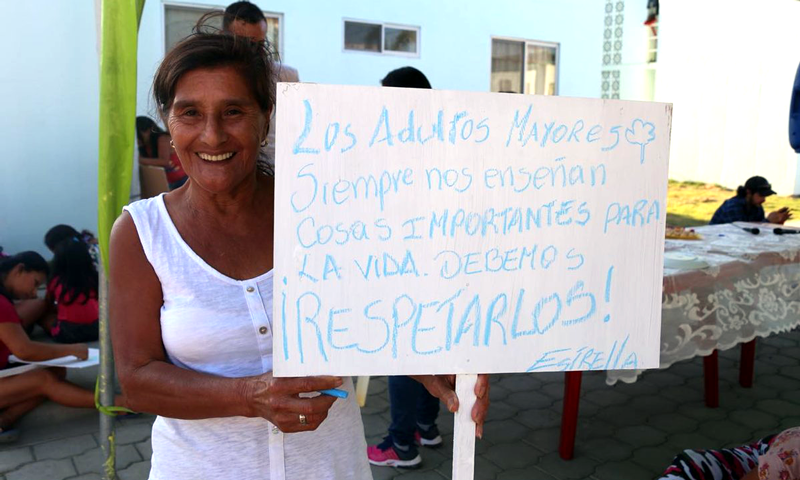 Los Adultos Mayores
Siempre nos enseñan
cosas IMPORTANTES PARA
LA VIDA. DEBEMOS
¡RESPETARLOS!
Estrella